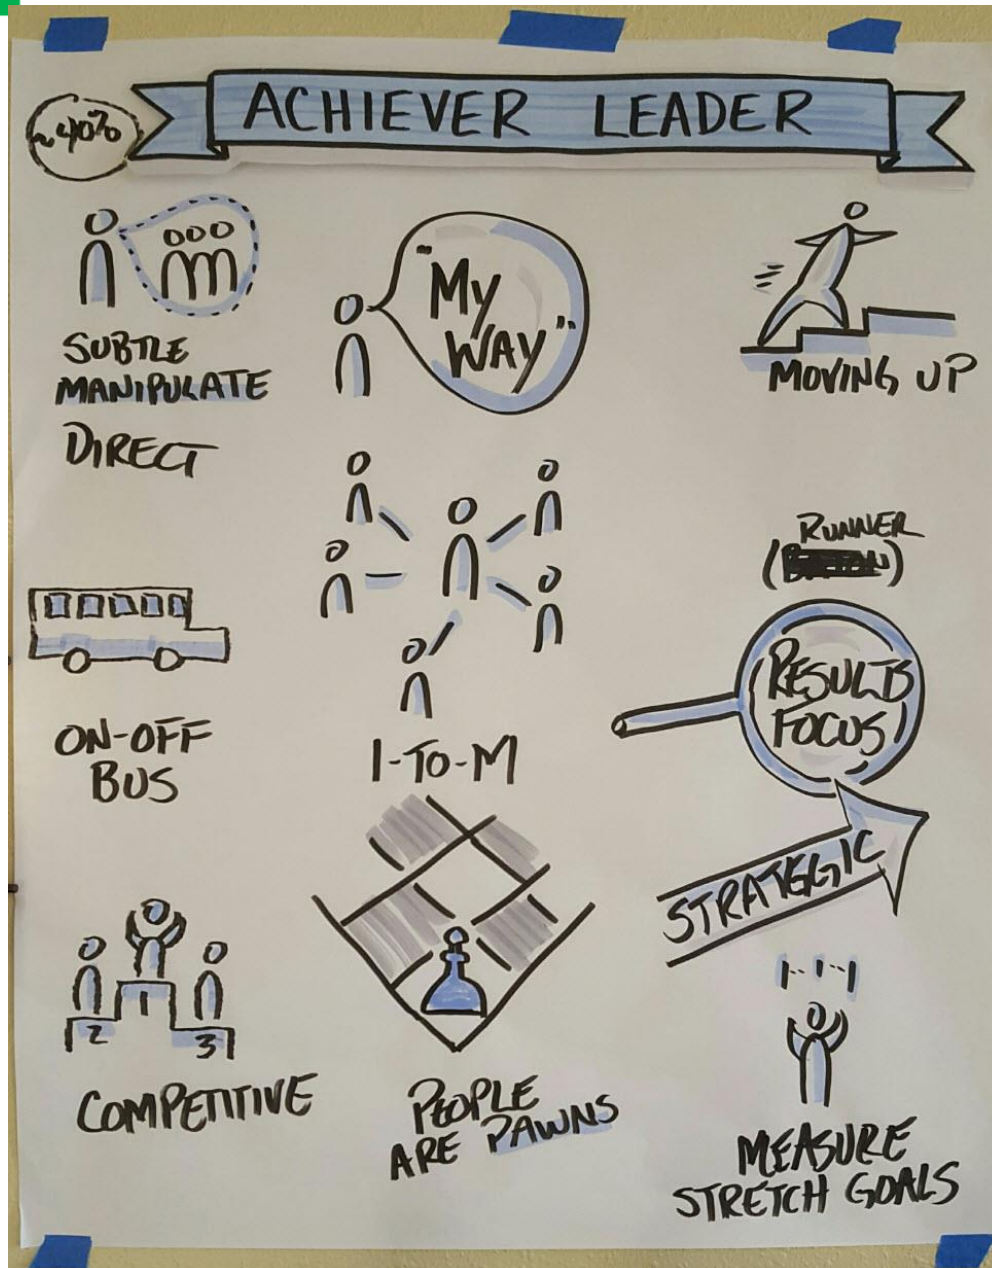 ACHIEVER LEADER
~40%
SUBTLE
MANIPULATE
DIRECT
"MY
WAY"
MOVING UP
ON-OFF
BUS
1-TO-M
RUNNER
RESULTS
FOCUS
STRATEGGIC
2
1
3
COMPETITIVE
PEOPLE
ARE PAWNS
MEASURE
STRETCH GOALS